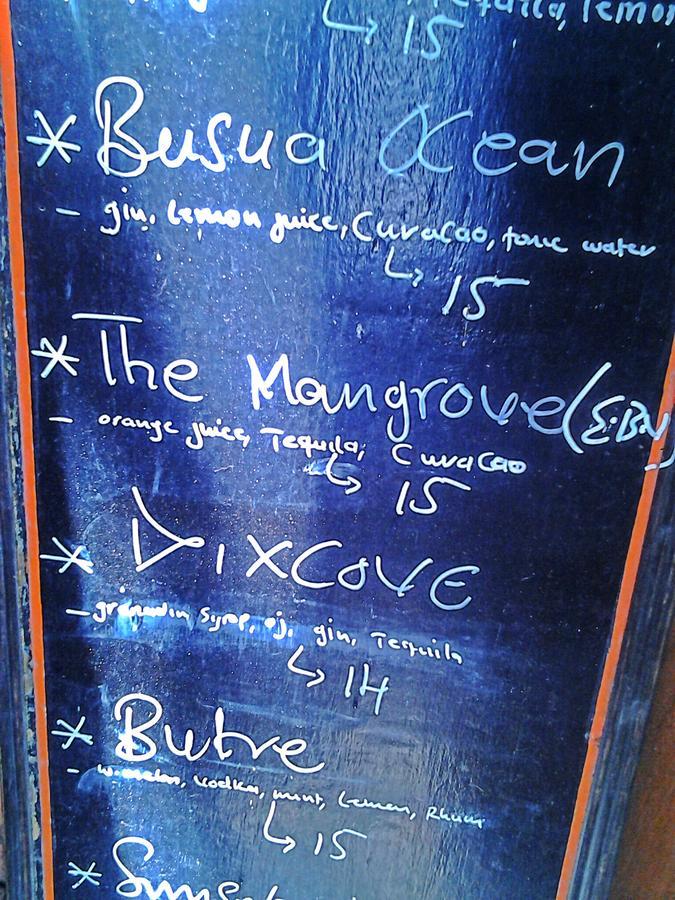 Tequila, lemon
↳ 15
* Busua Ocean
- gin, Lemon juice, Curacao, tonic water
↳ 15
* The Mangrove (
- orange juice, Tequila, Curacao
↳ 15
* DixCOVE
- grenadin Syrop, oj, gin, Tequila
↳ 14
* Butre
- w.melon, vodka, mint, Lemon, Rhum
↳ 15
* Sunset